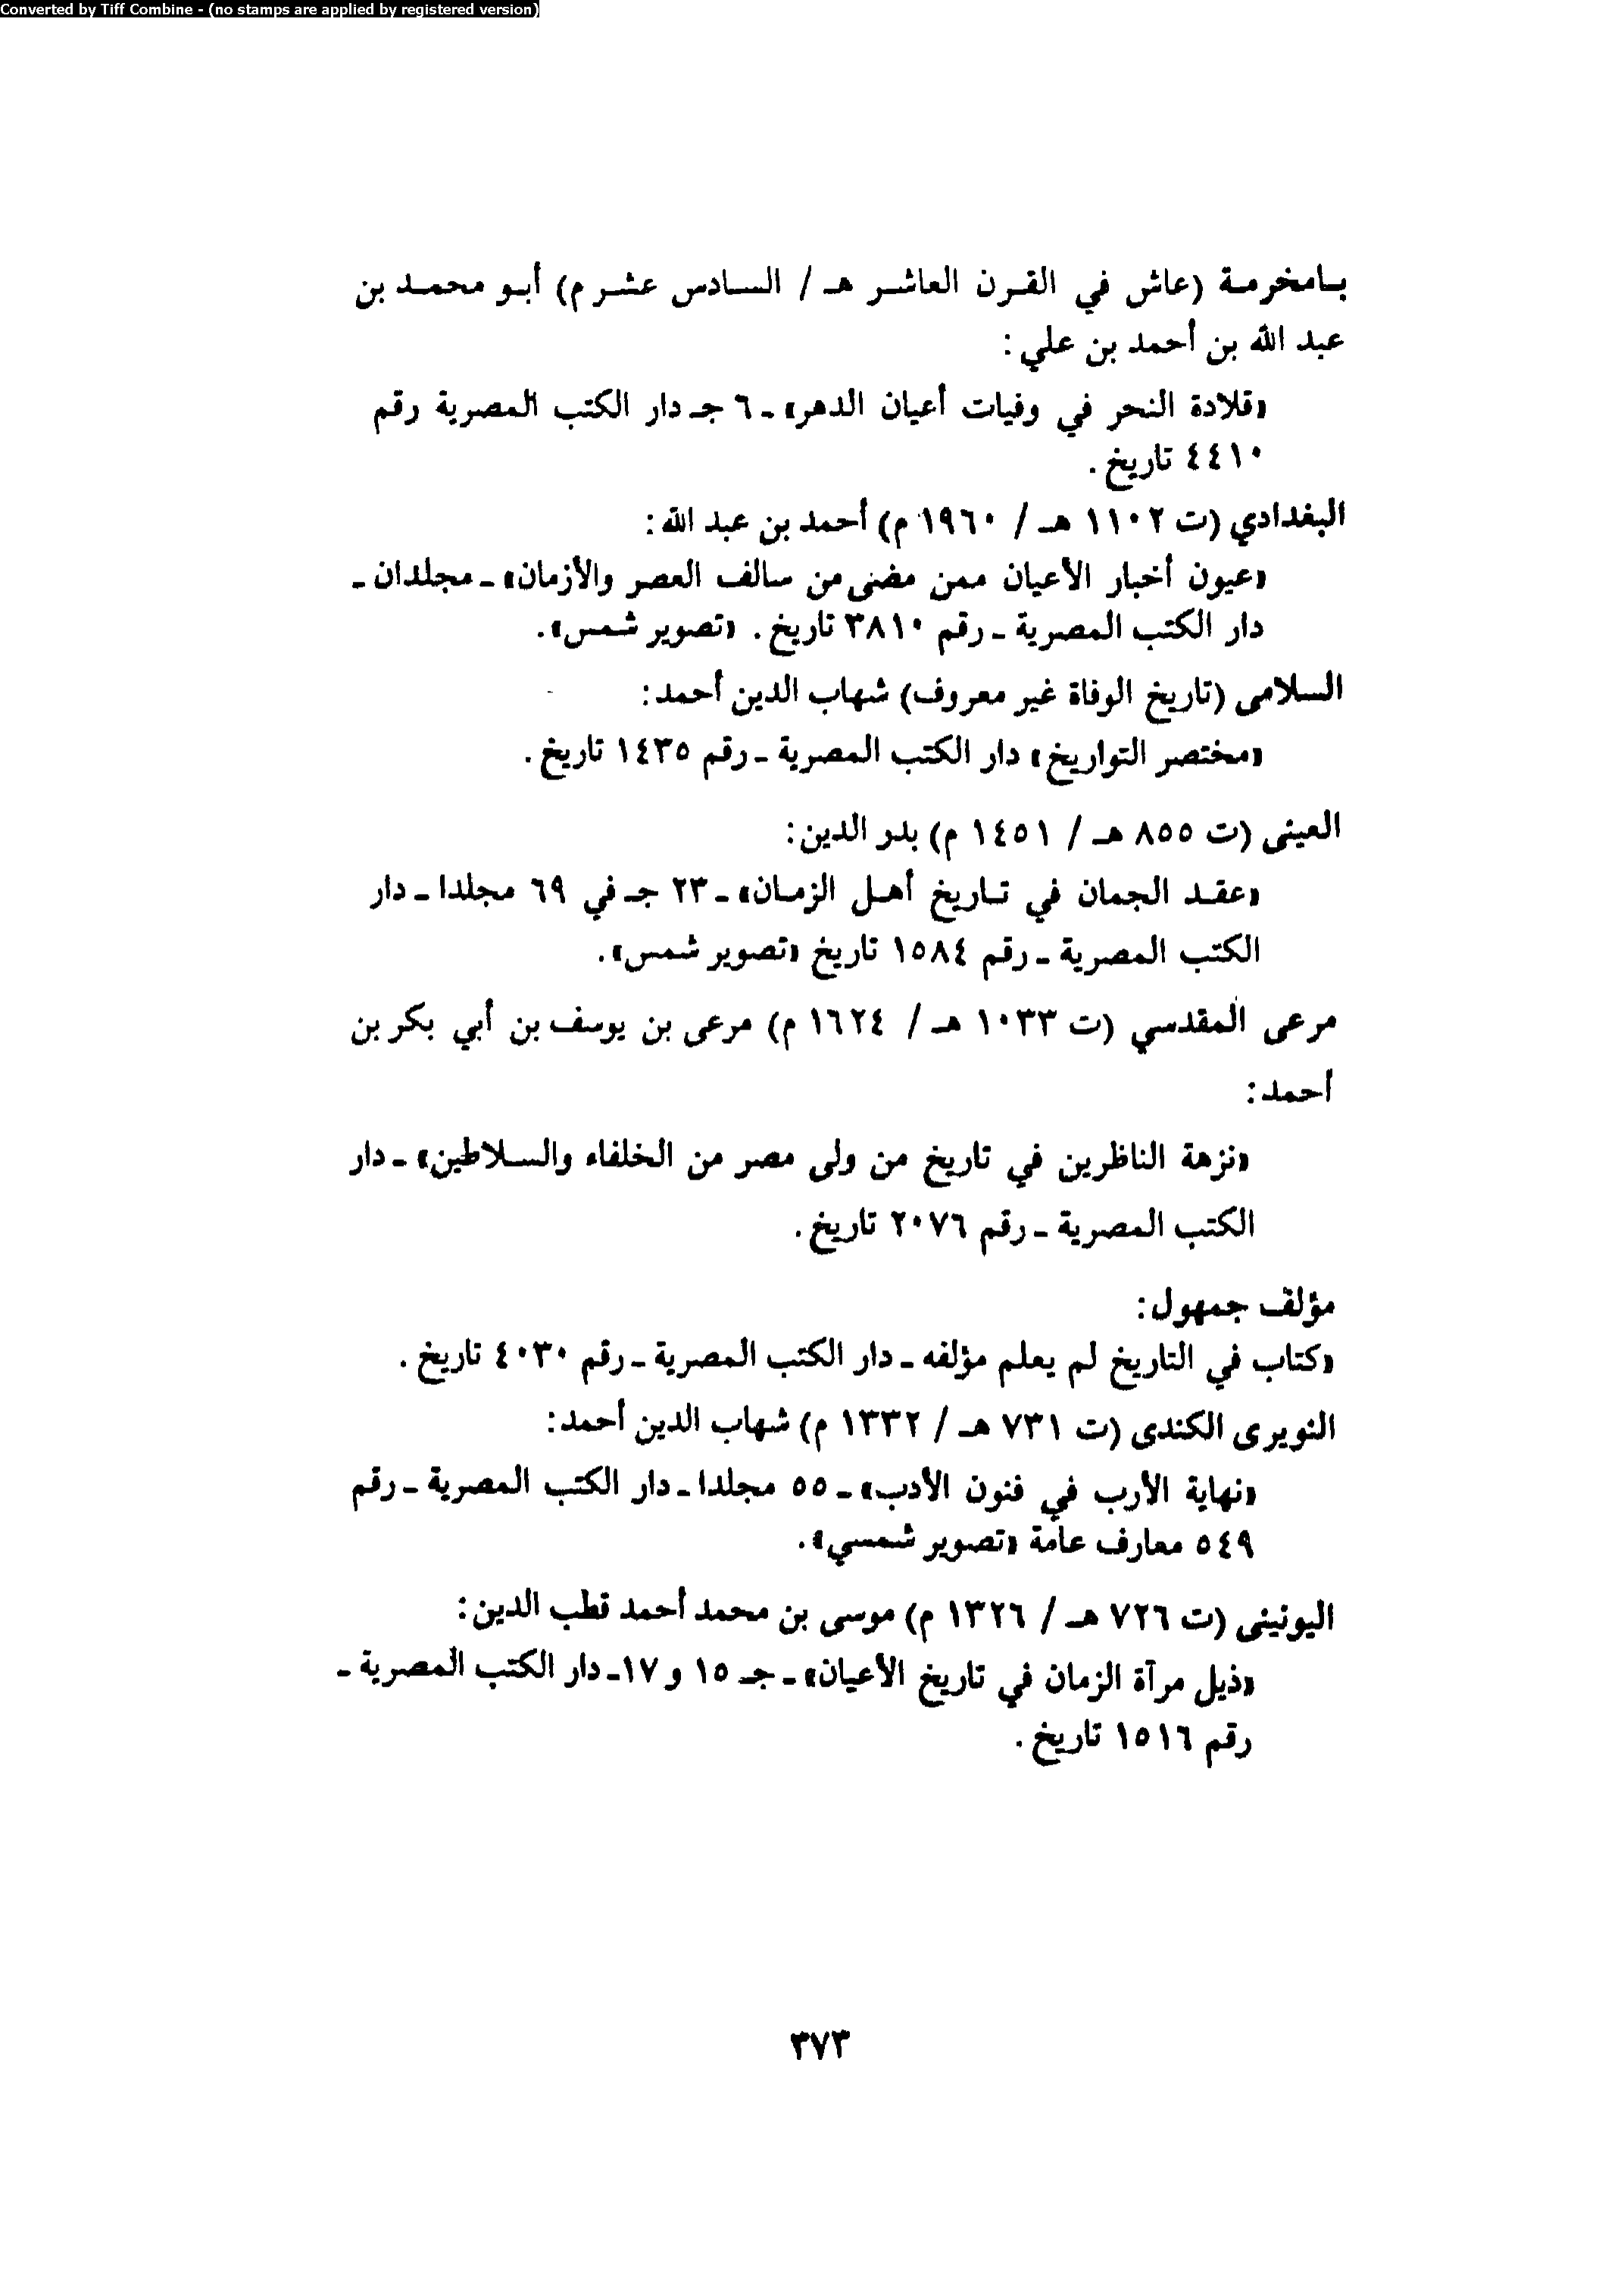 Converted by Tiff Combine - (no stamps are applied by registered version)
بامخرمة (عاش في القرن العاشر هـ / السادس عشر م) أبو محمد بن
عبد الله بن أحمد بن علي :
«قلادة النحر في وفيات أعيان الدهر» ـ ٦ جـ دار الكتب المصرية رقم
٤٤١٠ تاريخ .
البغدادي (ت ١١٠٢ هـ / ١٩٦٠ م) أحمد بن عبد الله :
«عيون أخبار الأعيان ممن مضى من سالف العصر والأزمان» ـ مجلدان ـ
دار الكتب المصرية ـ رقم ٣٨١٠ تاريخ . «تصوير شمس» .
السلامى (تاريخ الوفاة غير معروف) شهاب الدين أحمد :
«مختصر التواريخ» دار الكتب المصرية ـ رقم ١٤٣٥ تاريخ .
العينى (ت ٨٥٥ هـ / ١٤٥١ م) بدر الدين :
«عقد الجمان في تاريخ أهل الزمان» ـ ٢٣ جـ في ٦٩ مجلدا ـ دار
الكتب المصرية ـ رقم ١٥٨٤ تاريخ «تصوير شمس» .
مرعى المقدسي (ت ١٠٣٣ هـ / ١٦٢٤ م) مرعى بن يوسف بن أبي بكر بن
أحمد :
«نزهة الناظرين في تاريخ من ولى مصر من الخلفاء والسلاطين» ـ دار
الكتب المصرية ـ رقم ٢٠٧٦ تاريخ .
مؤلف جمهول :
«كتاب في التاريخ لم يعلم مؤلفه ـ دار الكتب المصرية ـ رقم ٤٠٣٠ تاريخ .
النويرى الكندى (ت ٧٣١ هـ / ١٣٣٢ م) شهاب الدين أحمد :
«نهاية الأرب في فنون الأدب» ـ ٥٥ مجلدا ـ دار الكتب المصرية ـ رقم
٥٤٩ معارف عامة «تصوير شمسي» .
اليونينى (ت ٧٢٦ هـ / ١٣٢٦ م) موسى بن محمد أحمد قطب الدين :
«ذيل مرآة الزمان في تاريخ الأعيان» ـ جـ ١٥ و ١٧ ـ دار الكتب المصرية ـ
رقم ١٥١٦ تاريخ .
٣٧٣